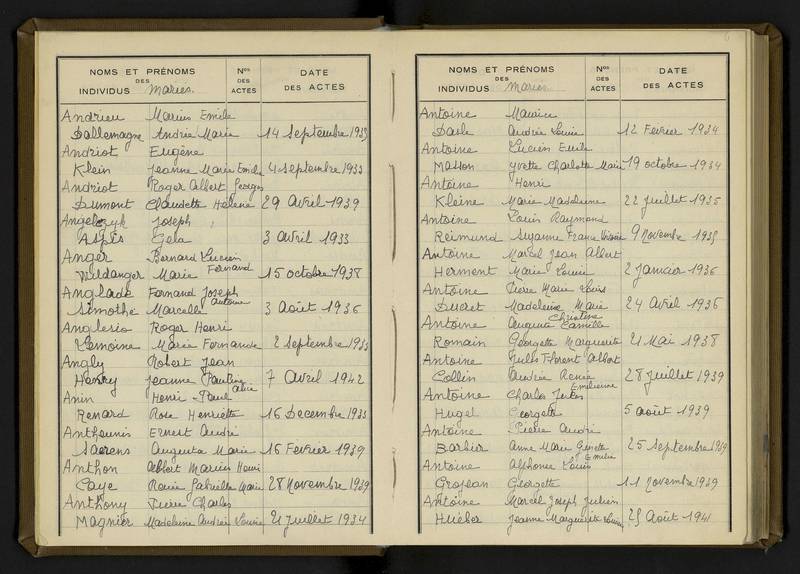 NOMS ET PRÉNOMS DES INDIVIDUS Mariés. Nos DES ACTES DATE DES ACTES
Andrieu Marius Emile
Dallemagne Andrée Marie 14 Septembre 1933
Andriot Eugène
Klein Jeanne Marie Emilie 4 septembre 1933
Andriot Roger Albert Georges
Dumont Claudette Hélène 29 Avril 1939
Angelczyk Joseph
Aspis Gela 3 avril 1933
Anger Bernard Lucien Fernand
Weldanger Marie 15 octobre 1938
Anglade Fernand Joseph Antoine
Simothe Marcelle 3 Août 1936
Anglerio Roger Henri
Lemoine Marie Fernande 2 septembre 1933
Angly Robert Jean
Henry Jeanne Pauline Alice 7 Avril 1942
Anin Henri-Paul
Renard Rose Henriette 16 Decembre 1933
Antheunis Ernest André
Saerens Augusta Marie 16 Fevrier 1939
Anthon Albert Marius Henri
Caye Renée Gabrielle Marie 28 Novembre 1939
Anthony Pierre Charles
Magnier Madeleine Andrée Louise 21 Juillet 1934
NOMS ET PRÉNOMS DES INDIVIDUS Mariés Nos DES ACTES DATE DES ACTES
Antoine Maurice
Andrée Louise 12 Fevrier 1934
Antoine Lucien Emile
Masson Yvette Charlotte Marie 19 octobre 1934
Antoine Henri
Kleine Marie Madeleine 22 Juillet 1935
Antoine Louis Raymond
Reimund Suzanne France 9 Novembre 1935
Antoine Marcel Jean Albert
Herment Marie Louise 2 Janvier 1936
Antoine Pierre Marie Louis
Ducret Madeleine Marie Christine 24 Avril 1936
Antoine Auguste Camille
Romain Georgette Marguerite 21 Mai 1938
Antoine Jules Florent Albert
Collin Andrée Renée Emilienne 28 Juillet 1939
Antoine Charles Jules
Hugel Georgette 5 août 1939
Antoine Pierre André
Barbier Anne Marie Ginette Emilie 25 Septembre 1939
Antoine Alphonse Louis
Grosjean Georgette 11 Novembre 1939
Antoine Marcel Joseph Julien
Huéber Jeanne Marguerite Louise 25 Août 1941